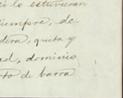 lo estuvieran
siempre, de
dera, quieta y
ad, dominio
to de barra